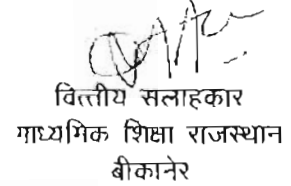 वित्तीय सलाहकार
माध्यमिक शिक्षा राजस्थान
बीकानेर